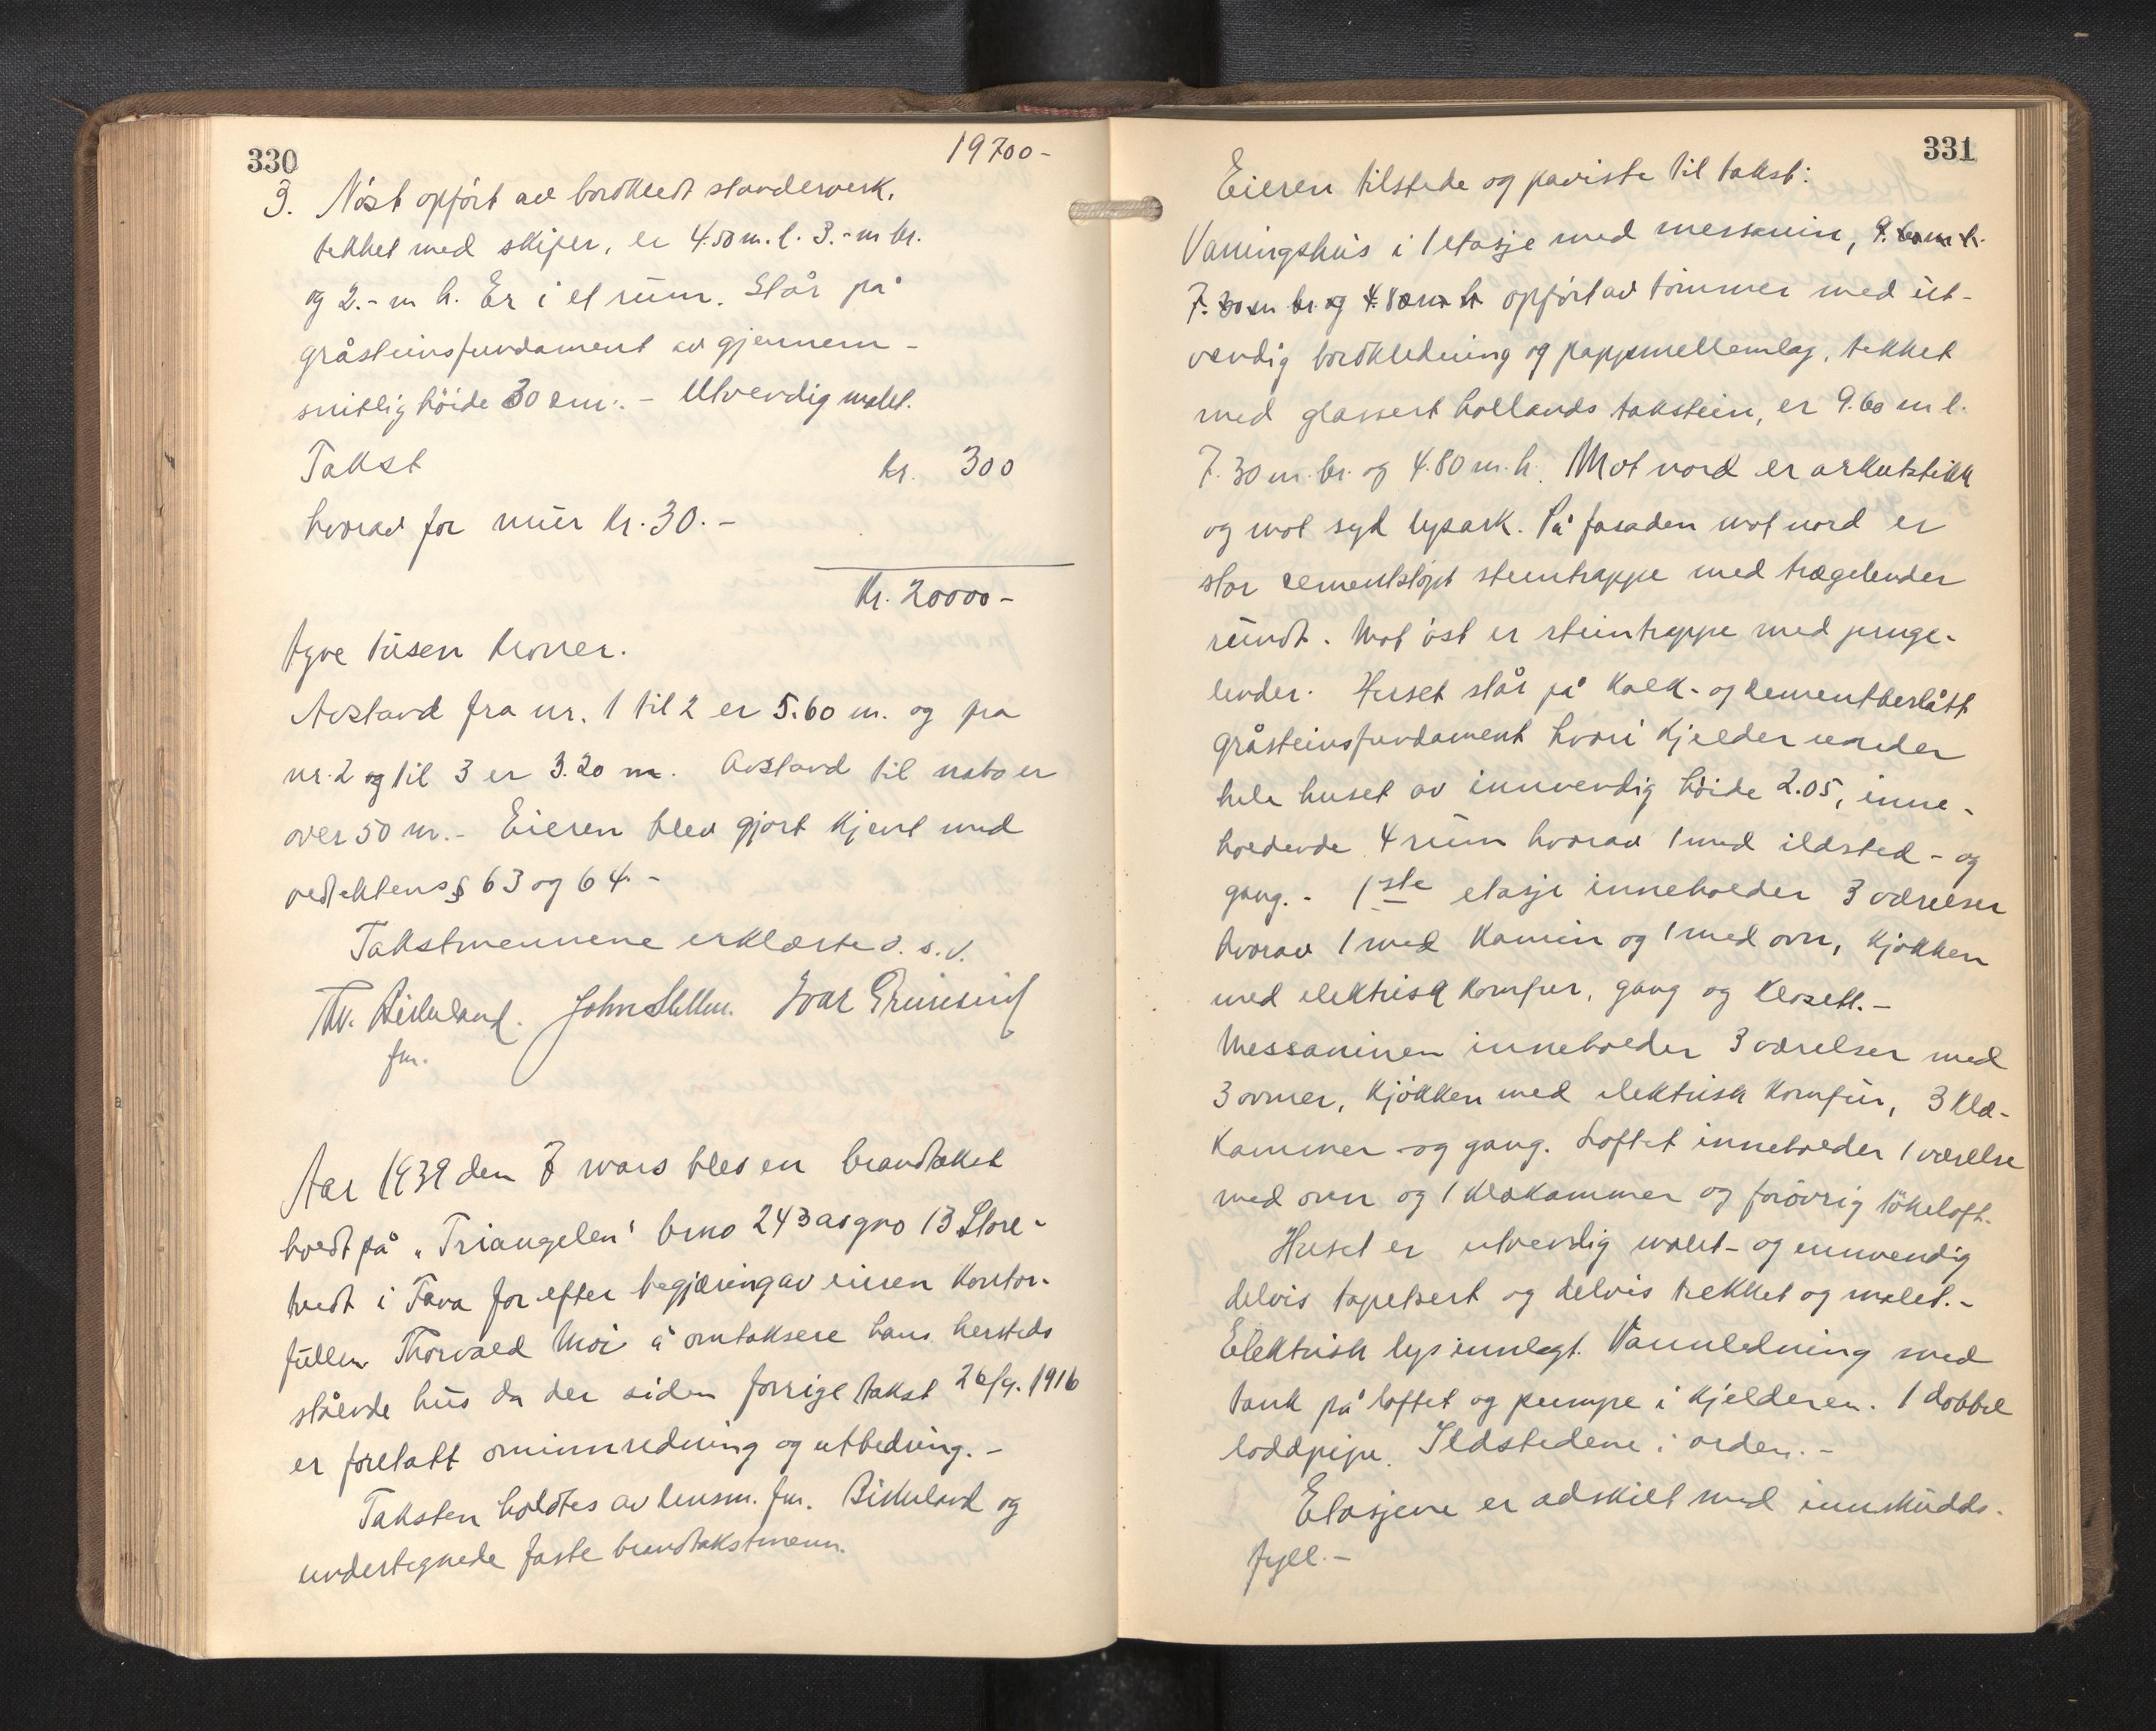 330
19700-
3. Nöst opfört av bordkledt standerverk,
tekket med skifer, er 4.50 m. l. 3.- m br.
og 2.- m h. Er i et rum. Står på
gråsteinsfundament av gjennem-
snitlig höide 30 cm. - Utvendig malet.
Takst kr. 300
hvorav for mur kr. 30.-
Kr. 20000-
tyve tusen kroner.
Avstand fra nr. 1 til 2 er 5.60 m. og fra
nr. 2 og til 3 er 3.20 m. Avstand til nabo er
over 50 m.- Eieren blev gjort kjent med
vedtektens § 63 og 64.-
Takstmennene erklærte o. s. v.
Th. Birkeland. John Ivar
fm.
Aar 1939 den 7 mars blev en brandtakst
holdt på „Triangelen" bno 243 av gno 13 Store-
tvedt i Fana for efter begjæring av eieren Kontor-
fullm. Thorvald Moi å omtaksere hans hersteds
stående hus da der siden forrige takst 26/9. 1916
er foretatt ominnredning og utbedring.-
Taksten holdtes av lensm. fm. Birkeland og
undertegnede faste brandtakstmenn.
331
Eieren tilstede og paviste til takst:
Vaningshus i 1 etasje med messanin, 9.60 m l.
7.30 m br. og 4.80 m h. opfört av tömmer med ut-
vendig bordkledning og pappmellemlag, tekket
med glassert hollands takstein, er 9.60 m l.
7.30 m. br. og 4.80 m. h. Mot nord er arkutstikk
og mot syd lysark. På fasaden mot nord er
stor cementstöpt steintrappe med trægelender
rundt. Mot öst er steintrappe med jernge-
lender. Huset står på kalk- og cementberslått
gråsteinsfundament hvori kjelder under
hele huset av innvendig höide 2.05, inne-
holdende 4 rum hvorav 1 med ildsted - og
gang. - 1ste etasje inneholder 3 værelser
hvorav 1 med kamin og 1 med ovn, kjökken
med elektrisk komfur, gang og klosett.-
Messaninen inneholder 3 værelser med
3 ovner, kjökken med elektrisk komfur, 3 klæ-
kammer og gang. Loftet inneholder 1 værelse
med ovn og 1 klækammer og forövrig tökeloft.
Huset er utvendig malet - og innvendig
delvis tapetsert og delvis trekket og malet.-
Elektrisk lys innlagt. Vannledning med
tank på loftet og pumpe i kjelderen. 1 dobbel
loddpipe. Ildstedene i orden.-
Etasjene er adskilt med innskudds-
fyll.-